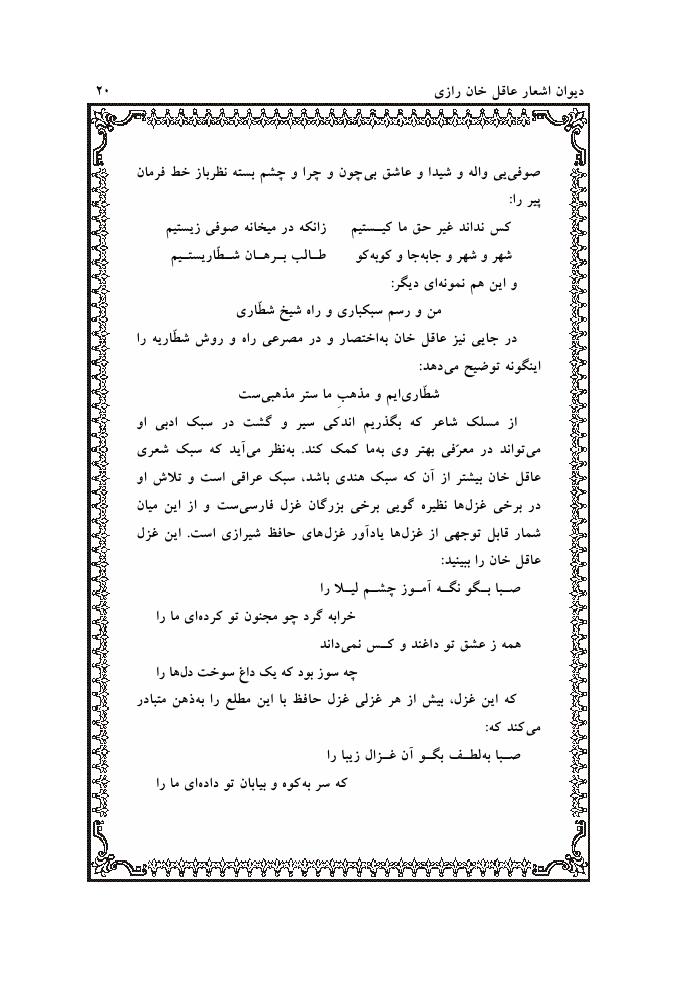 دیوان اشعار عاقل خان رازی ۲۰
صوفی‌یی واله و شیدا و عاشق بی‌چون و چرا و چشم بسته نظرباز خط فرمان
پیر را:
کس نداند غیر حق ما کیـستیم زانکه در میخانه صوفی زیستیم
شهر و شهر و جابه‌جا و کوبه‌کو طـالب بـرهـان شـطّاریستـیم
و این هم نمونه‌ای دیگر:
من و رسم سبکباری و راه شیخ شطّاری
در جایی نیز عاقل خان به‌اختصار و در مصرعی راه و روش شطاریه را
اینگونه توضیح می‌دهد:
شطّاری‌ایم و مذهبِ ما ستر مذهبی‌ست
از مسلک شاعر که بگذریم اندکی سیر و گشت در سبک ادبی او
می‌تواند در معرّفی بهتر وی به‌ما کمک کند. به‌نظر می‌آید که سبک شعری
عاقل خان بیشتر از آن که سبک هندی باشد، سبک عراقی است و تلاش او
در برخی غزل‌ها نظیره گویی برخی بزرگان غزل فارسی‌ست و از این میان
شمار قابل توجهی از غزل‌ها یادآور غزل‌های حافظ شیرازی است. این غزل
عاقل خان را ببینید:
صـبا بـگو نگـه آمـوز چشـم لیـلا را
خرابه گرد چو مجنون تو کرده‌ای ما را
همه ز عشق تو داغند و کـس نمی‌داند
چه سوز بود که یک داغ سوخت دل‌ها را
که این غزل، بیش از هر غزلی غزل حافظ با این مطلع را به‌ذهن متبادر
می‌کند که:
صـبا به‌لطـف بگـو آن غـزال زیبا را
که سر به‌کوه و بیابان تو داده‌ای ما را